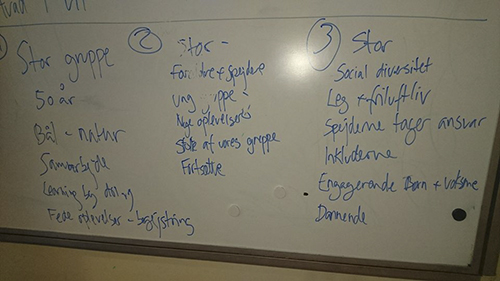 Stor gruppe
50 år
Bål - natur
Samarbejde
Learning by doing
Fede oplevelser - begejstring
2 Stor -
Forældre + spejdere
ung gruppe
Nye oplevelser
Stolte af vores gruppe
Fortsætte
3 Stor
Social diversitet
Leg + friluftliv
Spejderne tager ansvar
Inkluderne
Engagerende Børn + voksne
Dannende